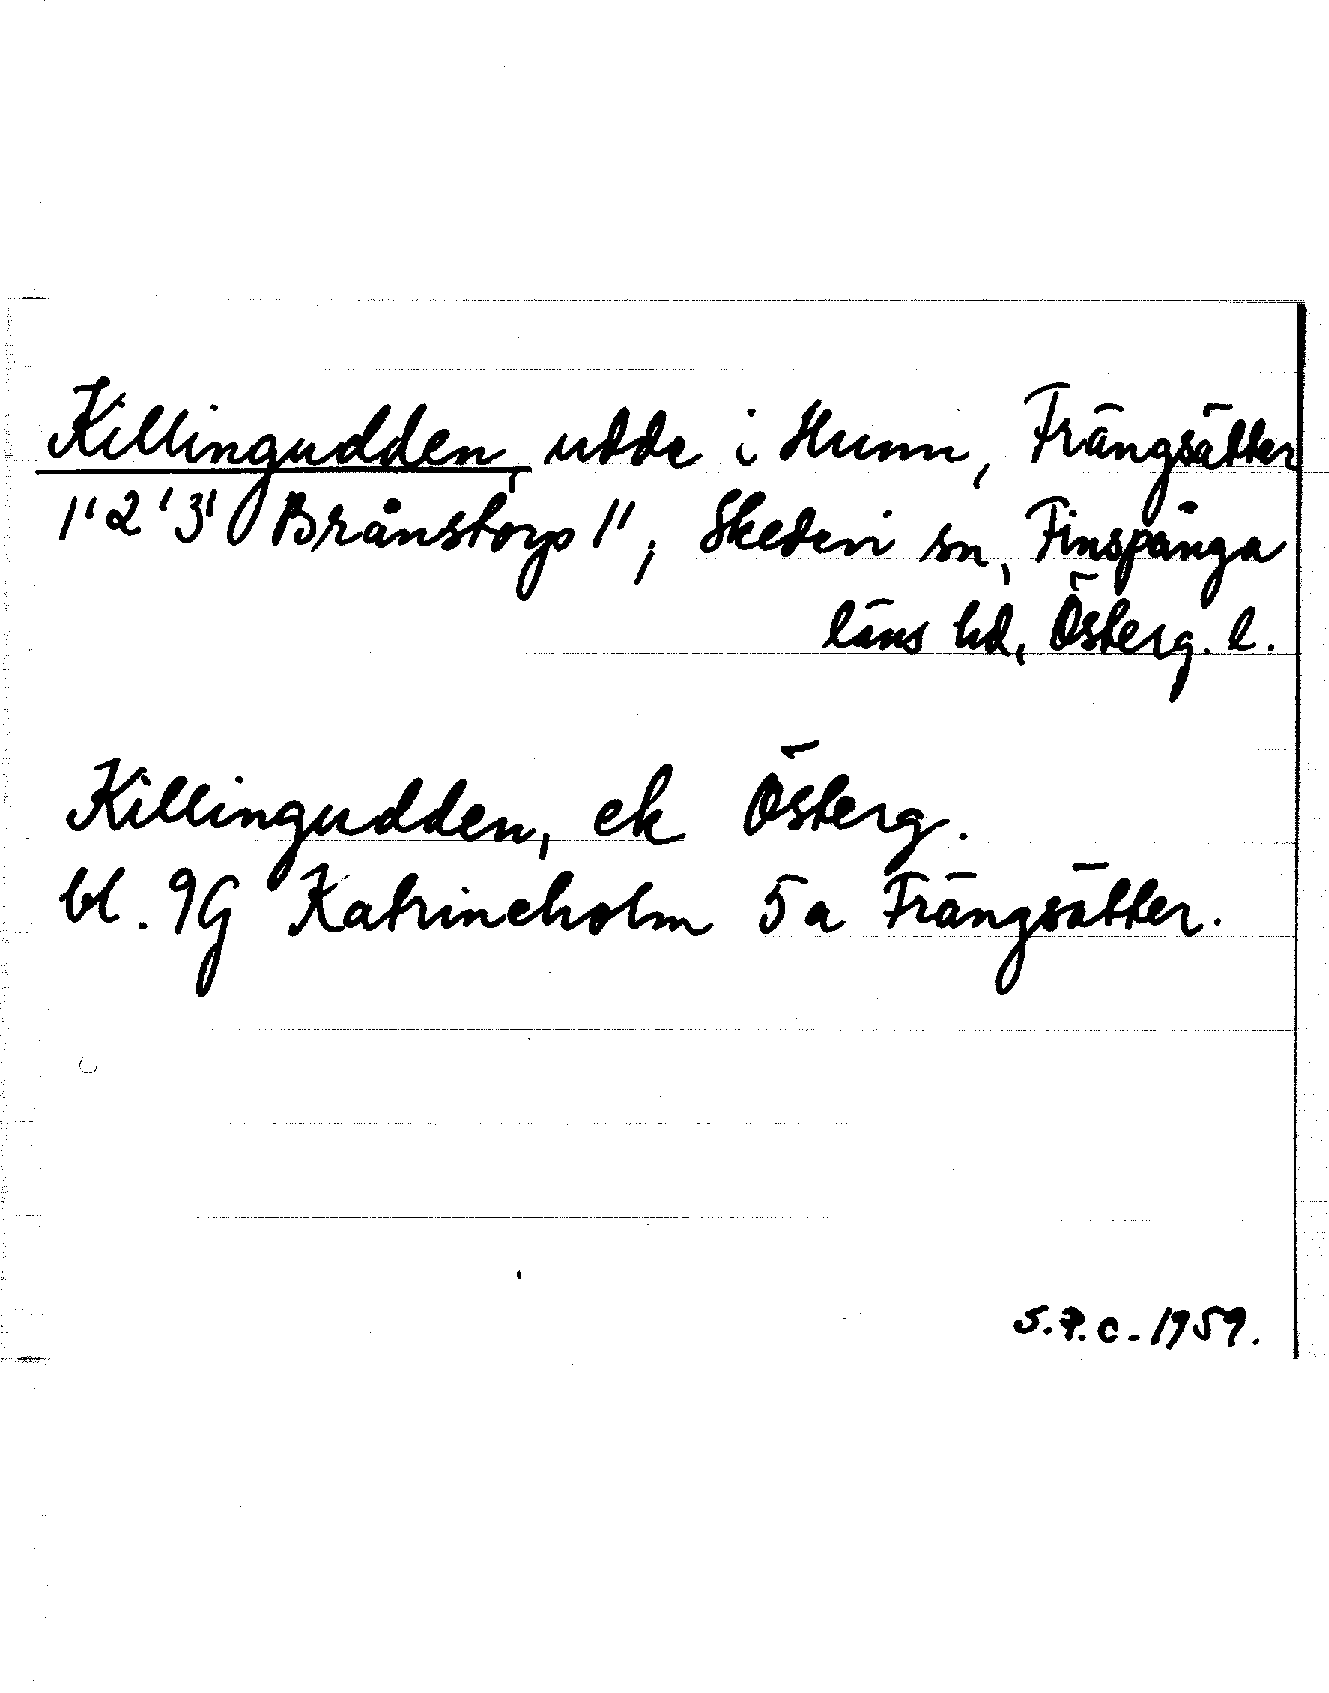 Killingudden, udde i Hunn, Frängsätter
1' 2' 3' Brånstorp 1', Skedevi sn, Finspånga
läns hd, Österg. l.
Killingudden, ek Österg.
bl. 9G Katrineholm 5a Frängsätter.
S.P.C. 1959.